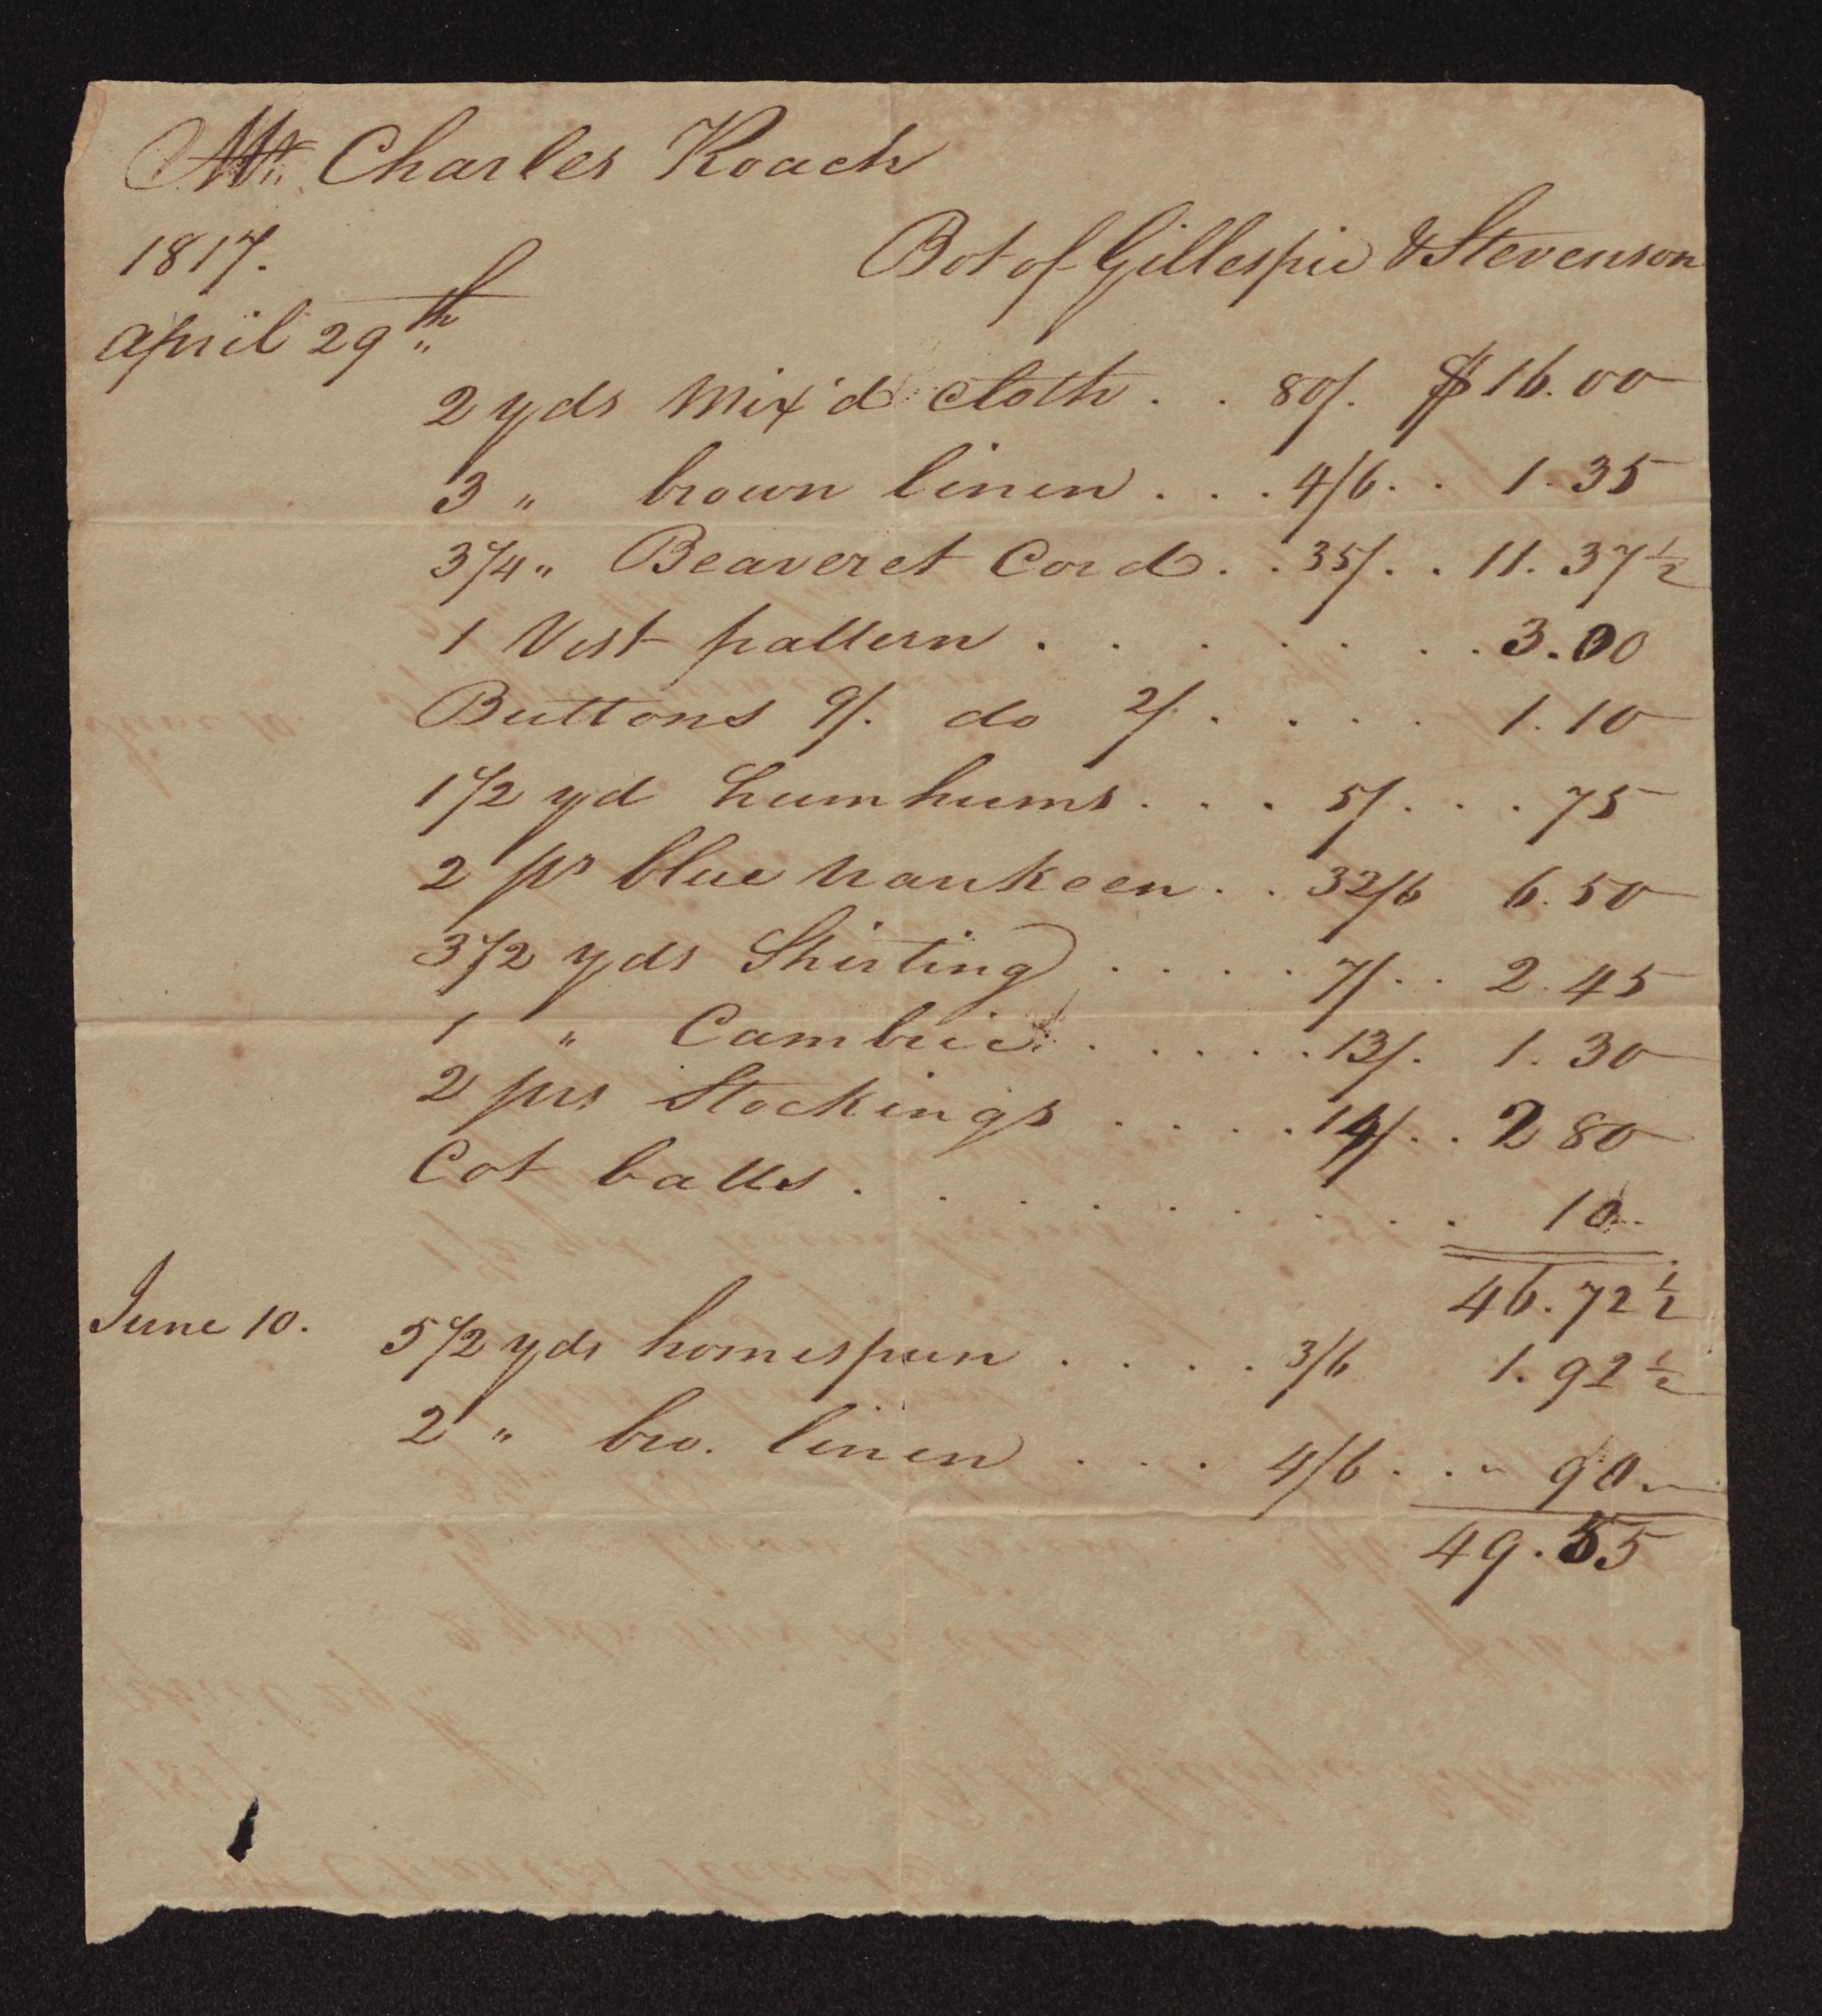 Mr. Charles Roach
1817. Bot of Gillespie & Stevenson
April 29th
2 yds Mix'd Cloth . . 80/. $16.00
3 " brown linen . . . 4/6 . . 1.35
3 1/4 " Beaveret Cord . . 35/. . 11.37 1/2
1 Vest pattern . . . . . . . . 3.00
Buttons 9/. do 2/. . . . 1.10
1 1/2 yd humhums . . . 5/. . . . 75
2 ps blue nankeen . . 32/6 6.50
3 1/2 yds Shirting . . . . 7/. . 2.45
1 " Cambric . . . . . 13/. 1.30
2 prs Stockings . . . . 14/. . 2 80
Cot balls . . . . . . . . . 10
46.72 1/2
June 10. 5 1/2 yds homespun . . . . 3/6 1.92 1/2
2 " bro. linen . . . 4/6 . . " 90
49.55